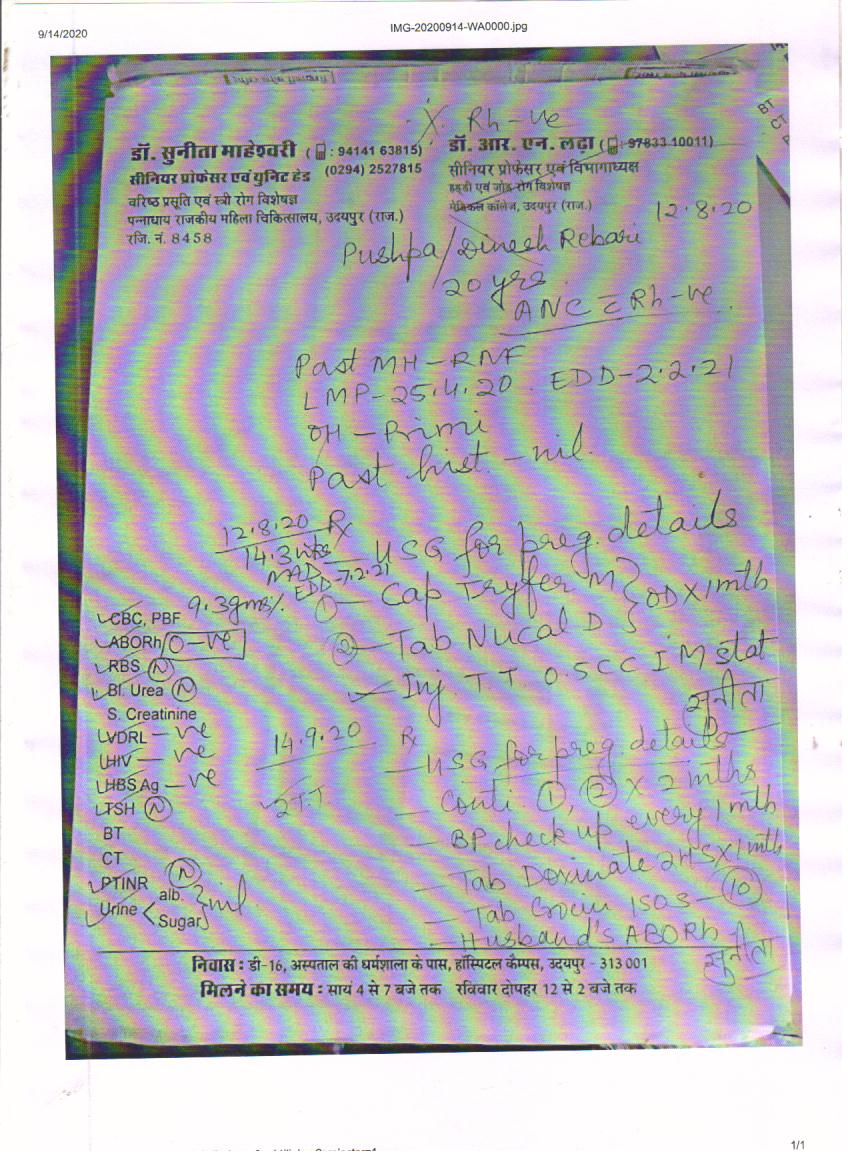 9/14/2020
IMG-20200914-WA0000.jpg
X. Rh-ve
डॉ. सुनीता माहेश्वरी ( : 94141 63815)
(0294) 2527815
सीनियर प्रोफेसर एवं युनिट हेड
वरिष्ठ प्रसूति एवं स्त्री रोग विशेषज्ञ
पन्नाधाय राजकीय महिला चिकित्सालय, उदयपुर (राज.)
रजि. नं. 8458
डॉ. आर. एन. लढ़ा ( : 97833 10011)
सीनियर प्रोफेसर एवं विभागाध्यक्ष
हड्डी एवं जोड़ रोग विशेषज्ञ
मेडिकल कॉलेज, उदयपुर (राज.)
BT
CT
12.8.20
Pushpa/Dinesh Rebari
20 yrs.
ANC c Rh-ve.
Past MH-RNF
LMP-25.4.20. EDD-2.2.21
OH-Primi
Past hist.-nil.
12.8.20 Rx
14.3 wks
EDD-7.2.21
USG for preg. details
① Cap Tryfer M } OD X 1mth
② Tab Nucal D
Inj. TT 0.5CC IM stat
सुनीता
CBC, PBF 9.3gms%
ABORh O-ve
RBS N
Bl. Urea N
S. Creatinine
VDRL -ve
HIV -ve
HBS Ag -ve
TSH N
BT
CT
PTINR N
Urine < alb. Sugar } nil
14.9.20 Rx
2TT
- USG for preg. details
- Conti. ①, ② X 2 mths
- BP check up every 1 mth
- Tab Doxinate 2HS X 1mth
- Tab Crocin 1SOS - 10
- Husband's ABORh
सुनीता
निवास : डी-16, अस्पताल की धर्मशाला के पास, हॉस्पिटल कैम्पस, उदयपुर - 313 001
मिलने का समय : सायं 4 से 7 बजे तक रविवार दोपहर 12 से 2 बजे तक
1/1